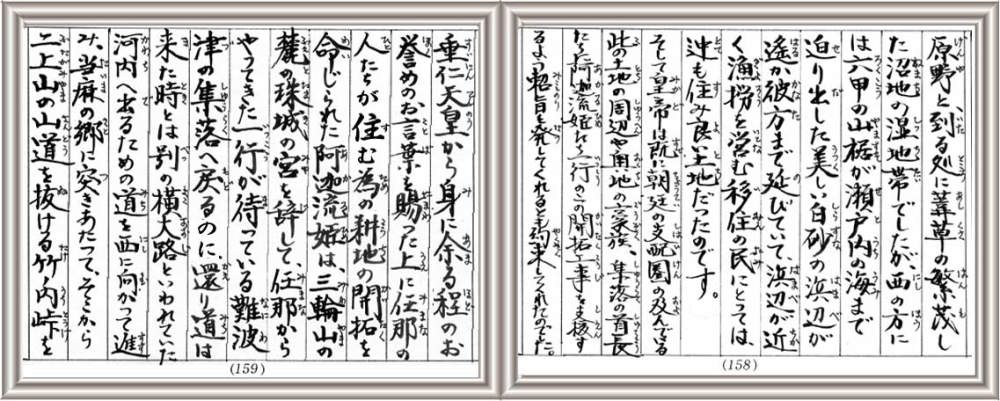 原野と、到る処に葦草の繁茂し
た沼地の湿地帯でしたが、西の方に
は六甲の山裾が瀬戸内の海まで
迫り出した美しい白砂の浜辺が
遙か彼方まで延びていて、浜辺が近
く漁撈を営む移住の民にとっては、
迚も住み良い土地だったのです。
そして皇帝は既に朝廷の支配圏の及んでいる
此の土地の周辺や の豪族、集落の首長
たちに阿迦流姫たち一行の開拓工事を支援す
るよう詔旨を発してくれるとも約束してくれたのでした。
(158)
垂仁天皇から身に余る程のお
誉めのお言葉を賜った上に任那の
人たちが住む為の耕地の開拓を
命じられた阿迦流姫は、三輪山の
麓の珠城の宮を辞して、任那から
やってきた一行が待っている難波
津の集落へ戻るのに、還り道は
来た時とは別の横大路といわれていた
河内へ出るための道を西に向かって進
み、当麻の郷に突きあたって、そこから
二上山の山道を抜ける竹ノ内峠を
(159)